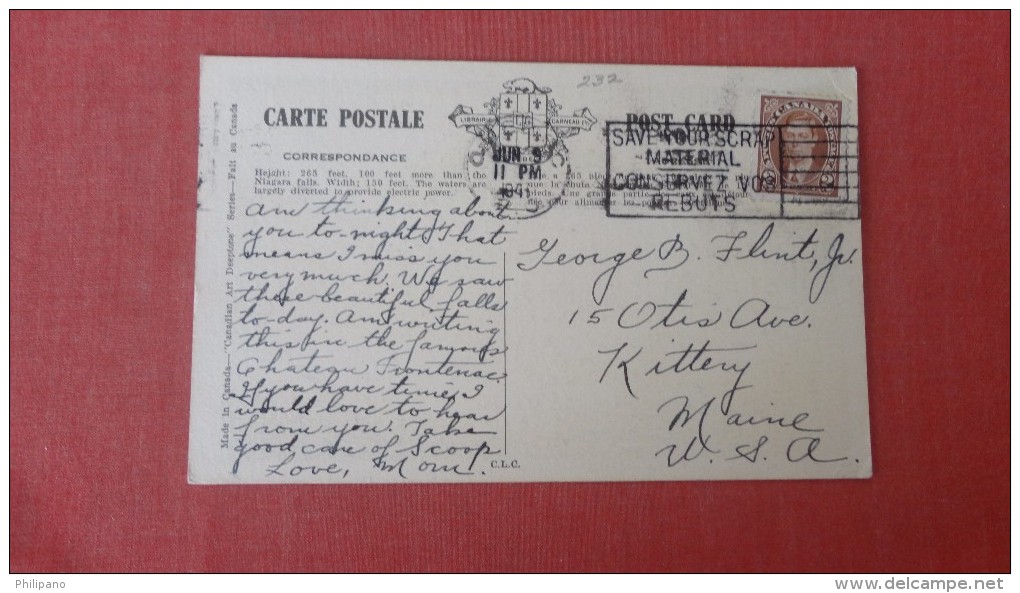 232
CARTE POSTALE
POST CARD
LIBRAIRIE GARNEAU
CORRESPONDANCE
JUN 9
11 PM
1941
SAVE YOUR SCRAP
MATERIAL
CONSERVEZ VOS
REBUTS
CANADA
Height: 265 feet, 100 feet more than the
Niagara falls. Width; 150 feet. The waters are
largely diverted to provide electric power.
Am thinking about
you to-night. That
means I miss you
very much. We saw
these beautiful falls
to-day. Am writing
this in the famous
Chateau Frontenac.
If you have time, I
would love to hear
from you. Take
good care of Scoop
Love, Mom.
George B. Flint, Jr.
15 Otis Ave.
Kittery
Maine
U. S. A.
C.L.C.
Made in Canada—"Canadian Art Deeptone" Series—Fait au Canada
Philipano
www.delcampe.net